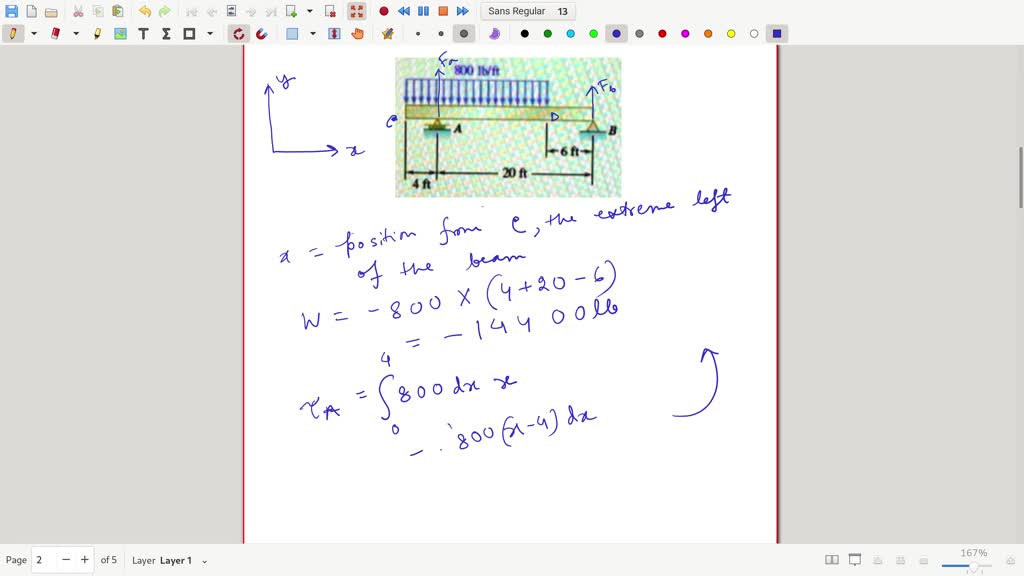 Sans Regular 13
y
x
Fa
800 lb/ft
Fb
C
A
D
B
6 ft
20 ft
4 ft
x = position from C, the extreme left
of the beam
W = -800 × (4+20-6)
= -14400 lb
τA = ∫₀⁴ 800 dx x
- 800(x-4) dx
Page 2 of 5 Layer Layer 1 167%